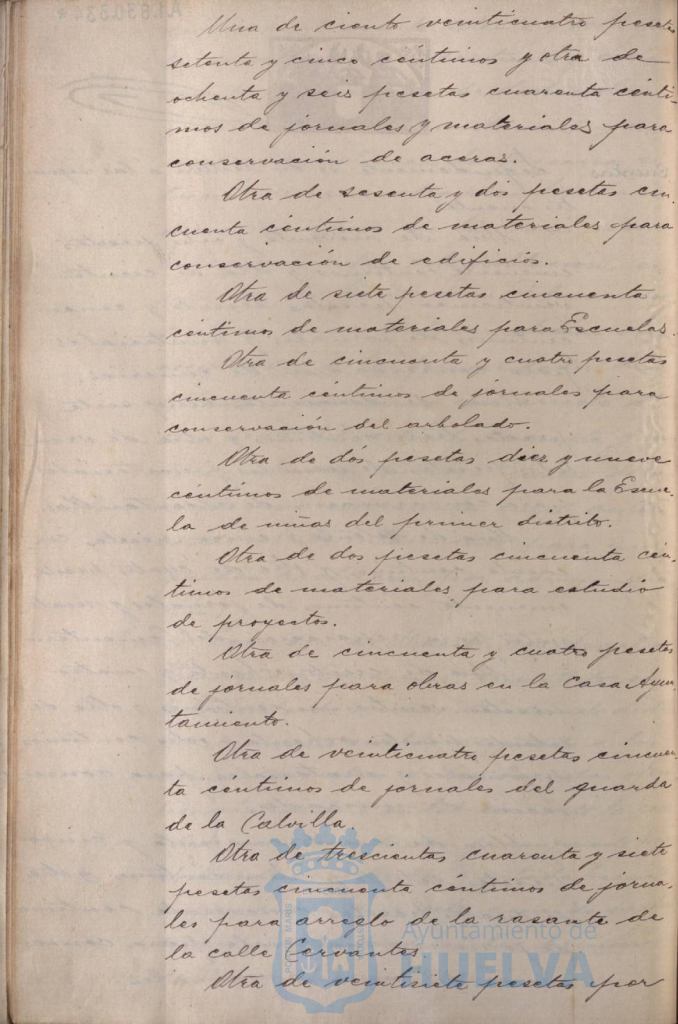 Una de ciento veinticuatro pesetas
setenta y cinco centimos y otra de
ochenta y seis pesetas cuarenta cénti-
mos de jornales y materiales para
conservación de aceras.
Otra de sesenta y dos pesetas cin
cuenta céntimos de materiales para
conservación de edificios.
Otra de siete pesetas cincuenta
céntimos de materiales para Escuelas.
Otra de cincuenta y cuatro pesetas
cincuenta céntimos de jornales para
conservación del arbolado.
Otra de dós pesetas diez y nueve
céntimos de materiales para la Escue-
la de niñas del primer distrito.
Otra de dos pesetas cincuenta cén-
timos de materiales para estudio
de proyectos.
Otra de cincuenta y cuatro pesetas
de jornales para obras en la Casa Ayun
tamiento.
Otra de veinticuatro pesetas cincuen
ta céntimos de jornales del guarda
de la Calvilla.
Otra de trescientas cuarenta y siete
pesetas cincuenta céntimos de jorna-
les para arreglo de la rasante de
la calle Cervantes
Otra de veintisiete pesetas por
Ayuntamiento de
HUELVA